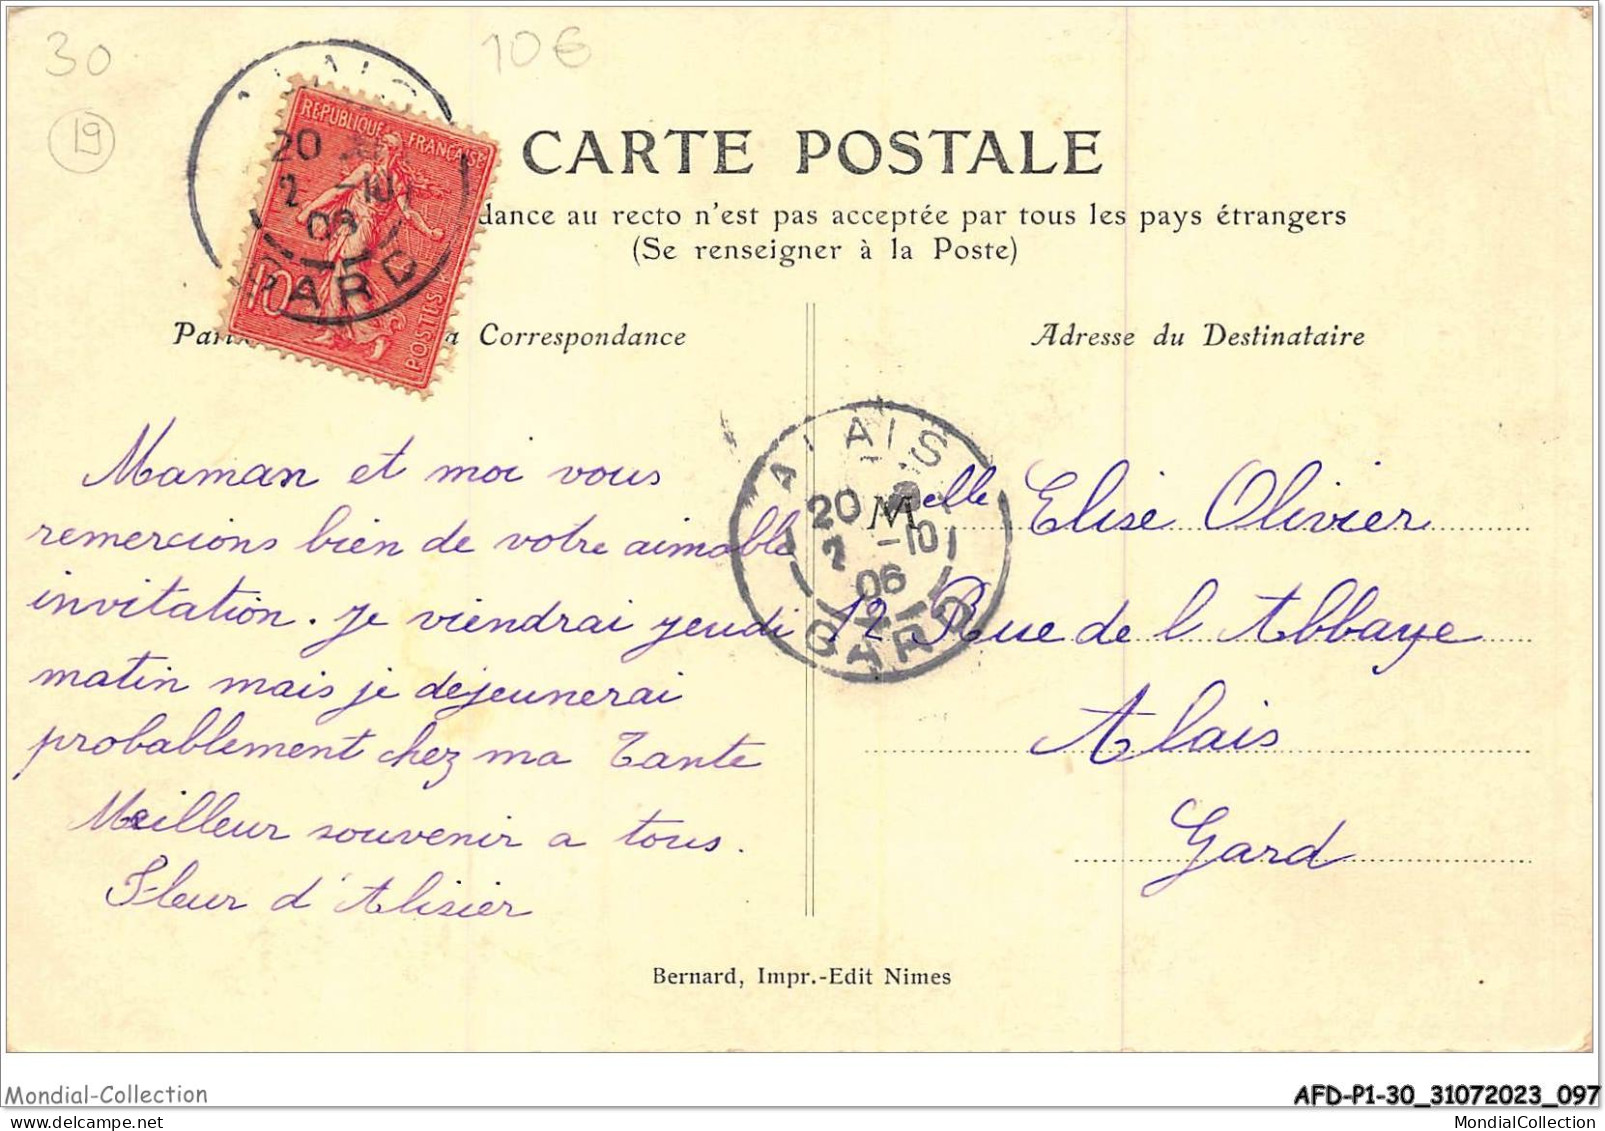 30
10€
19
ALAIS
20
2 -10
06
GARD
REPUBLIQUE FRANÇAISE
10
POSTES
CARTE POSTALE
dance au recto n'est pas acceptée par tous les pays étrangers
(Se renseigner à la Poste)
Correspondance
Adresse du Destinataire
Maman et moi vous
remercions bien de votre aimable
invitation. Je viendrai jeudi
matin mais je dejeunerai
probablement chez ma Tante
Meilleur souvenir a tous.
Fleur d'Alisier
ALAIS
20
2 -10
06
GARD
Melle Elise Olivier
12 Rue de l Abbaye
Alais
Gard
Bernard, Impr.-Edit Nimes
Mondial-Collection
AFD-P1-30_31072023_097
MondialCollection